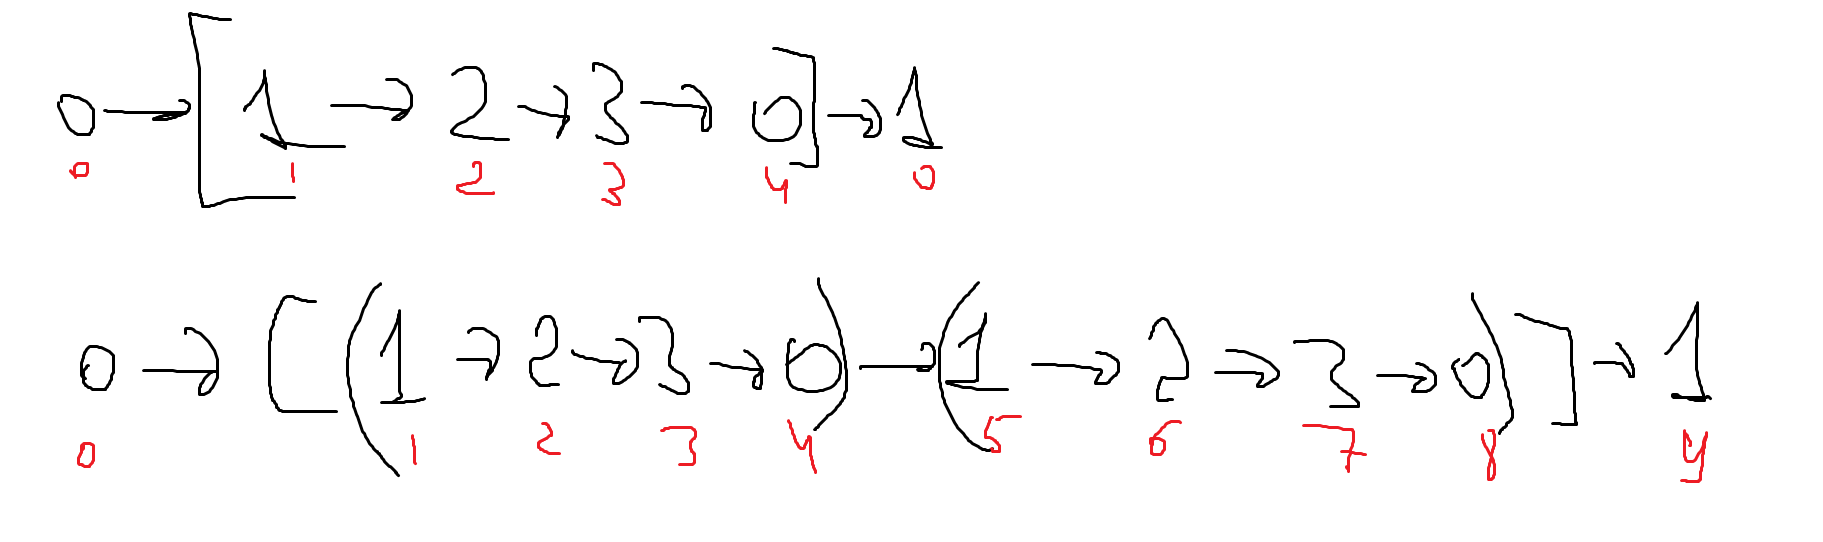 0 → [1 → 2 → 3 → 0] → 1
0 1 2 3 4 0
0 → [(1 → 2 → 3 → 0) → (1 → 2 → 3 → 0)] → 1
0 1 2 3 4 5 6 7 8 9